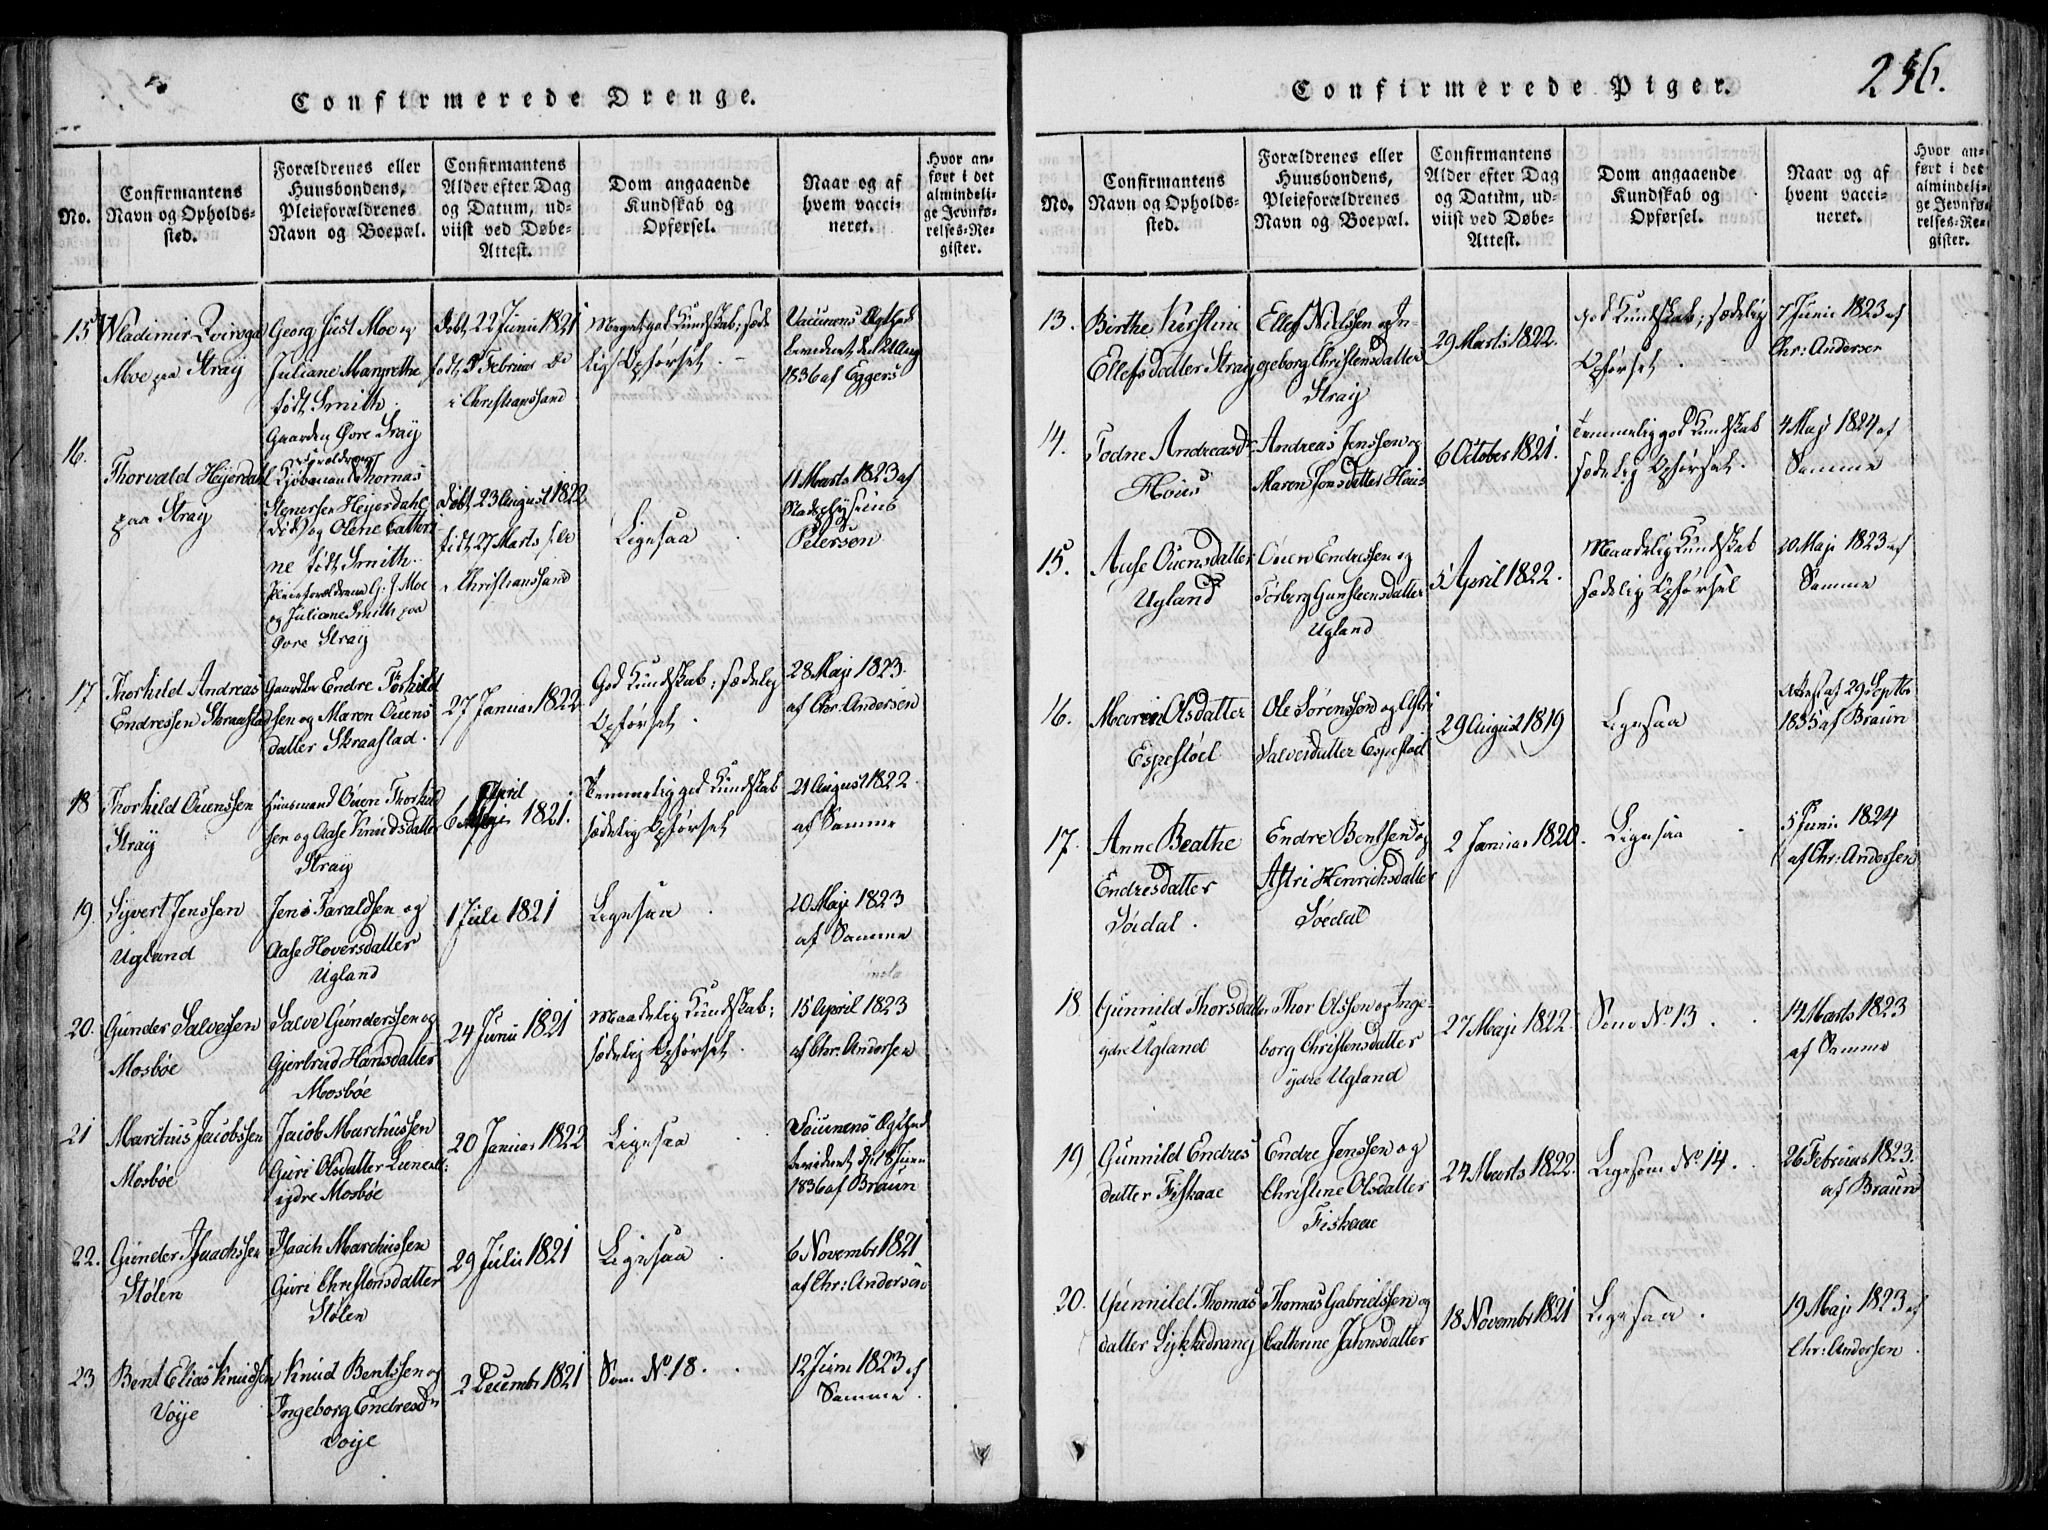 256.
Confirmerede Drenge.
No.
Confirmantens
Navn og Opholds-
sted.
Forældrenes eller
Huusbondens,
Pleieforældrenes
Navn og Boepæl.
Confirmantens
Alder efter Dag
og Datum, ud-
viist ved Døbe-
Attest.
Dom angaaende
Kundskab og
Opførsel.
Naar og af
hvem vacci-
neret.
Hvor an-
ført i det
almindeli-
ge Jevnfø-
relses-Re-
gister.
15
Wladimir
Moe paa Straÿ
Georg Just Moe og
Juliane Margrethe
født Smith.
Gaarden Øvre Straÿ
Døbt 22 Junii 1821
født 5 Februar
i Christianssand
Meget god Kundskab; sæde
lig Opførsel.
Vaccinens Ægthed
bevidnet den
1836 af Eggers
16.
Thorvald Heÿerdahl
paa Straÿ
Forældrene
Kjøbmand Thomas
Stenersen Heÿerdahl
død og Olene Cathri
ne født Smith.
Pleieforældrene G. J. Moe
og Juliane Smith paa
Øvre Straÿ
Døbt 23 August 1822
født 27 Marts
i Christianssand
Ligesaa
11 Marts 1823 af
Stadsphysicus
Peterson
17
Thorkild Andreas
Endressen Skraastad
Gaardbr Endre Torkild
sen og Maren Ouens
datter Skraastad.
27 Januar 1822
God Kundskab; sædelig
Opførsel.
28 Maji 1823.
af Chr: Andersen
18
Thorkild Ouenssen
Straÿ
Huusmand Ouen Thorkild
sen og Aase Knudsdatter
Straÿ
6 April 1821.
Temmelig god Kundskab
sædelig Opførsel
21 August 1822
af Samme
19.
Sivert Jenssen
Ugland
Jens Taraldsen og
Aase Hoversdatter
Ugland
1 Juli 1821
Ligesaa
20 Maji 1823
af Samme
20.
Gunder Salvesen
Mosbøe
Salve Gunderssen og
Gjertrud Hansdatter
Mosbøe
24 Junii 1821
Maadelig Kundskab;
sædelig Opførsel.
15 April 1823
af Chr: Andersen
21
Marchus Jacobssen
Mosbøe
Jacob Marchussen
Guri Olsdatter
ijdre Mosbøe
20 Januar 1822
Ligesaa
Vaccinens Ægthed
bevidnet d: 18 Juni
1836 af Braun
22.
Gunder Isaachssen
Stølen
Isaach Marchussen
Guri Christensdatter
Stølen
29 Julii 1821
Ligesaa
6 Novembr 1821
af Chr: Andersen
23
Bent Elias Knudsen
Voÿe
Knud Bentssen og
Ingeborg Endresdr
Voije
2 Decembr 1821
Som No. 18.
12 Juni 1823 af
Samme.
Confirmerede Piger.
No.
Confirmantens
Navn og Opholds-
sted.
Forældrenes eller
Huusbondens,
Pleieforældrenes
Navn og Boepæl.
Confirmantens
Alder efter Dag
og Datum, ud-
viist ved Døbe-
Attest.
Dom angaaende
Kundskab og
Opførsel.
Naar og af
hvem vacci-
neret.
Hvor an-
ført i det
almindeli-
ge Jevnfø-
relses-Re-
gister.
13.
Birthe Kirstine
Ellefsdatter Straÿ
Ellef Nielssen og In-
geborg Christensdatter
Straÿ
29 Marts 1822.
God Kundskab; sædelig
Opførsel.
7 Junii 1823 af
Chr: Andersen
14.
Todne Andreasdr
Høiës
Andreas Jenssen og
Maren Jonsdatter Høies
6 October 1821.
Temmelig god Kundskab
sædelig Opførsel.
4 Maji 1824 af
Samme
15.
Aase Ouensdatter
Ugland
Ouen Endressen og
Torberg Gunsteensdatter
Ugland
5 April 1822.
Maadelig Kundskab
sædelig Opførsel
20 Maji 1823 af
Samme
16.
Maren Olsdatter
Espestøel
Ole Sørenssen og Astri
Salvesdatter Espestøel
29 August 1819
Ligesaa
Attest af 29 Septbr
1835 af Braun
17.
Anne Beathe
Endresdatter
Søedal.
Endre Bentsen og
Astri Henrichsdatter
Søedal
2 Januar 1820.
Ligesaa
5 Junii 1824
af Chr: Andersen
18.
Gunnild Thorsdatter
ydre Ugland
Thor Olssen og Inge-
borg Christensdatter
ijdre Ugland
27 Maji 1822.
Som No. 13.
14 Marts 1823
af Samme
19
Gunnild Endres
datter Fiskaae
Endre Jenssen og
Christine Olsdatter
Fiskaae
24 Marts 1822.
Ligesom No. 14.
26 Februar 1823.
af Braun
20.
Gunnild Thomas
datter Lykkedrang
Thomas Gabrielssen og
Cathrine Jahnsdatter
18 Novembr 1821
Ligesaa.
19 Maji 1823 af
Chr: Andersen.